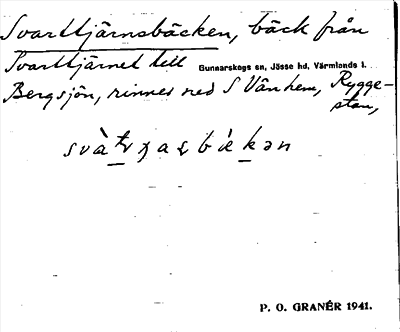 Svarttjärnsbäcken, bäck från
Svarttjärnet till Gunnarskogs sn, Jösse hd, Värmlands l.
Bergsjön, rinner ned S Vänhem, Rygge-
stan,
P. O. GRANÉR 1941.